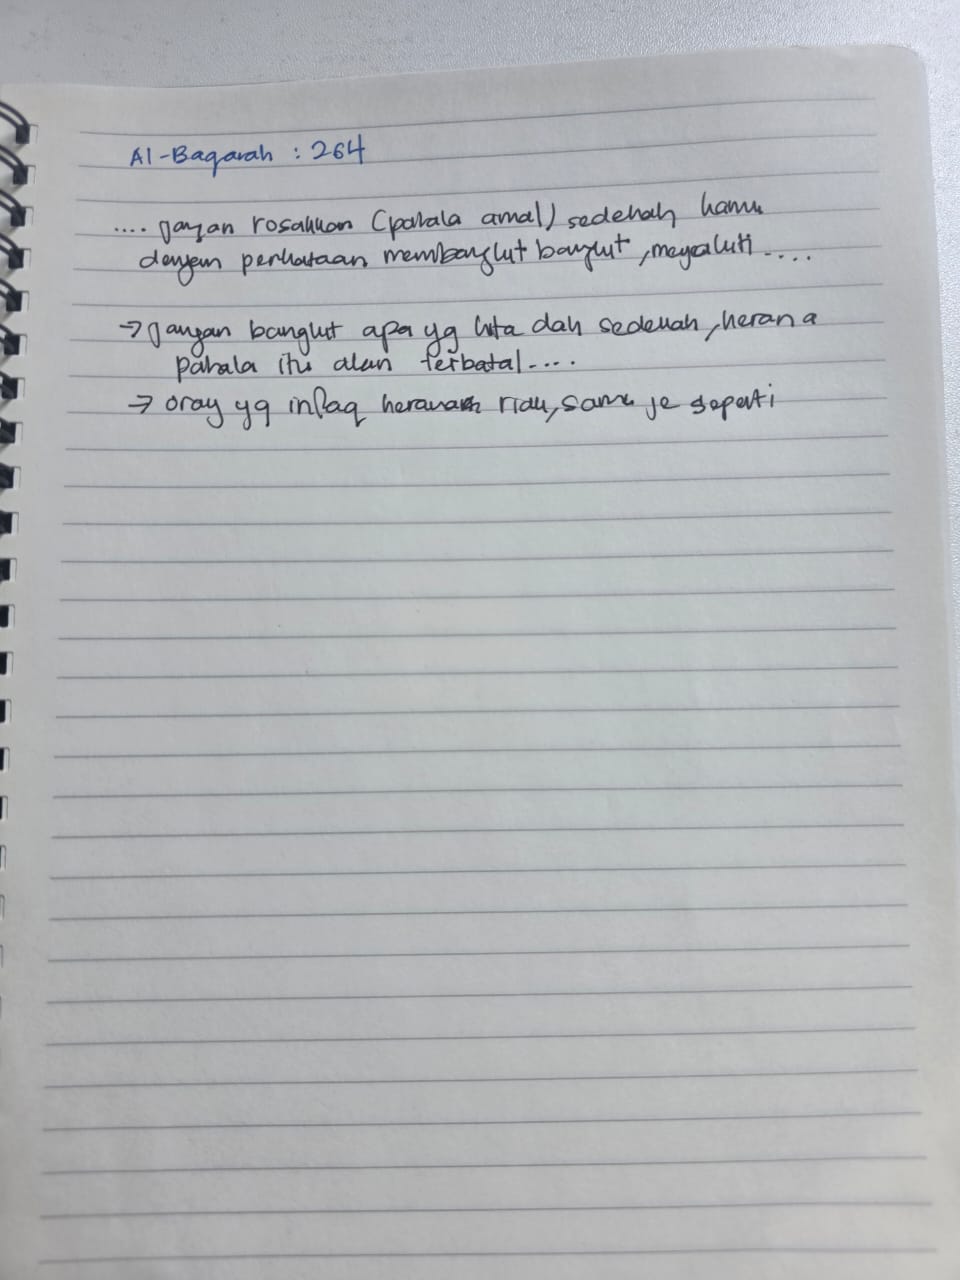 Al-Baqarah : 264
.... jangan rosakkan (pahala amal) sedekah kamu
dengan perkataan membangkit bangkit, menyakiti ....
→ Jangan bangkit apa yg kita dah sedekah, kerana
pahala itu akan terbatal ....
→ orang yg infaq kerana riak, sama je seperti